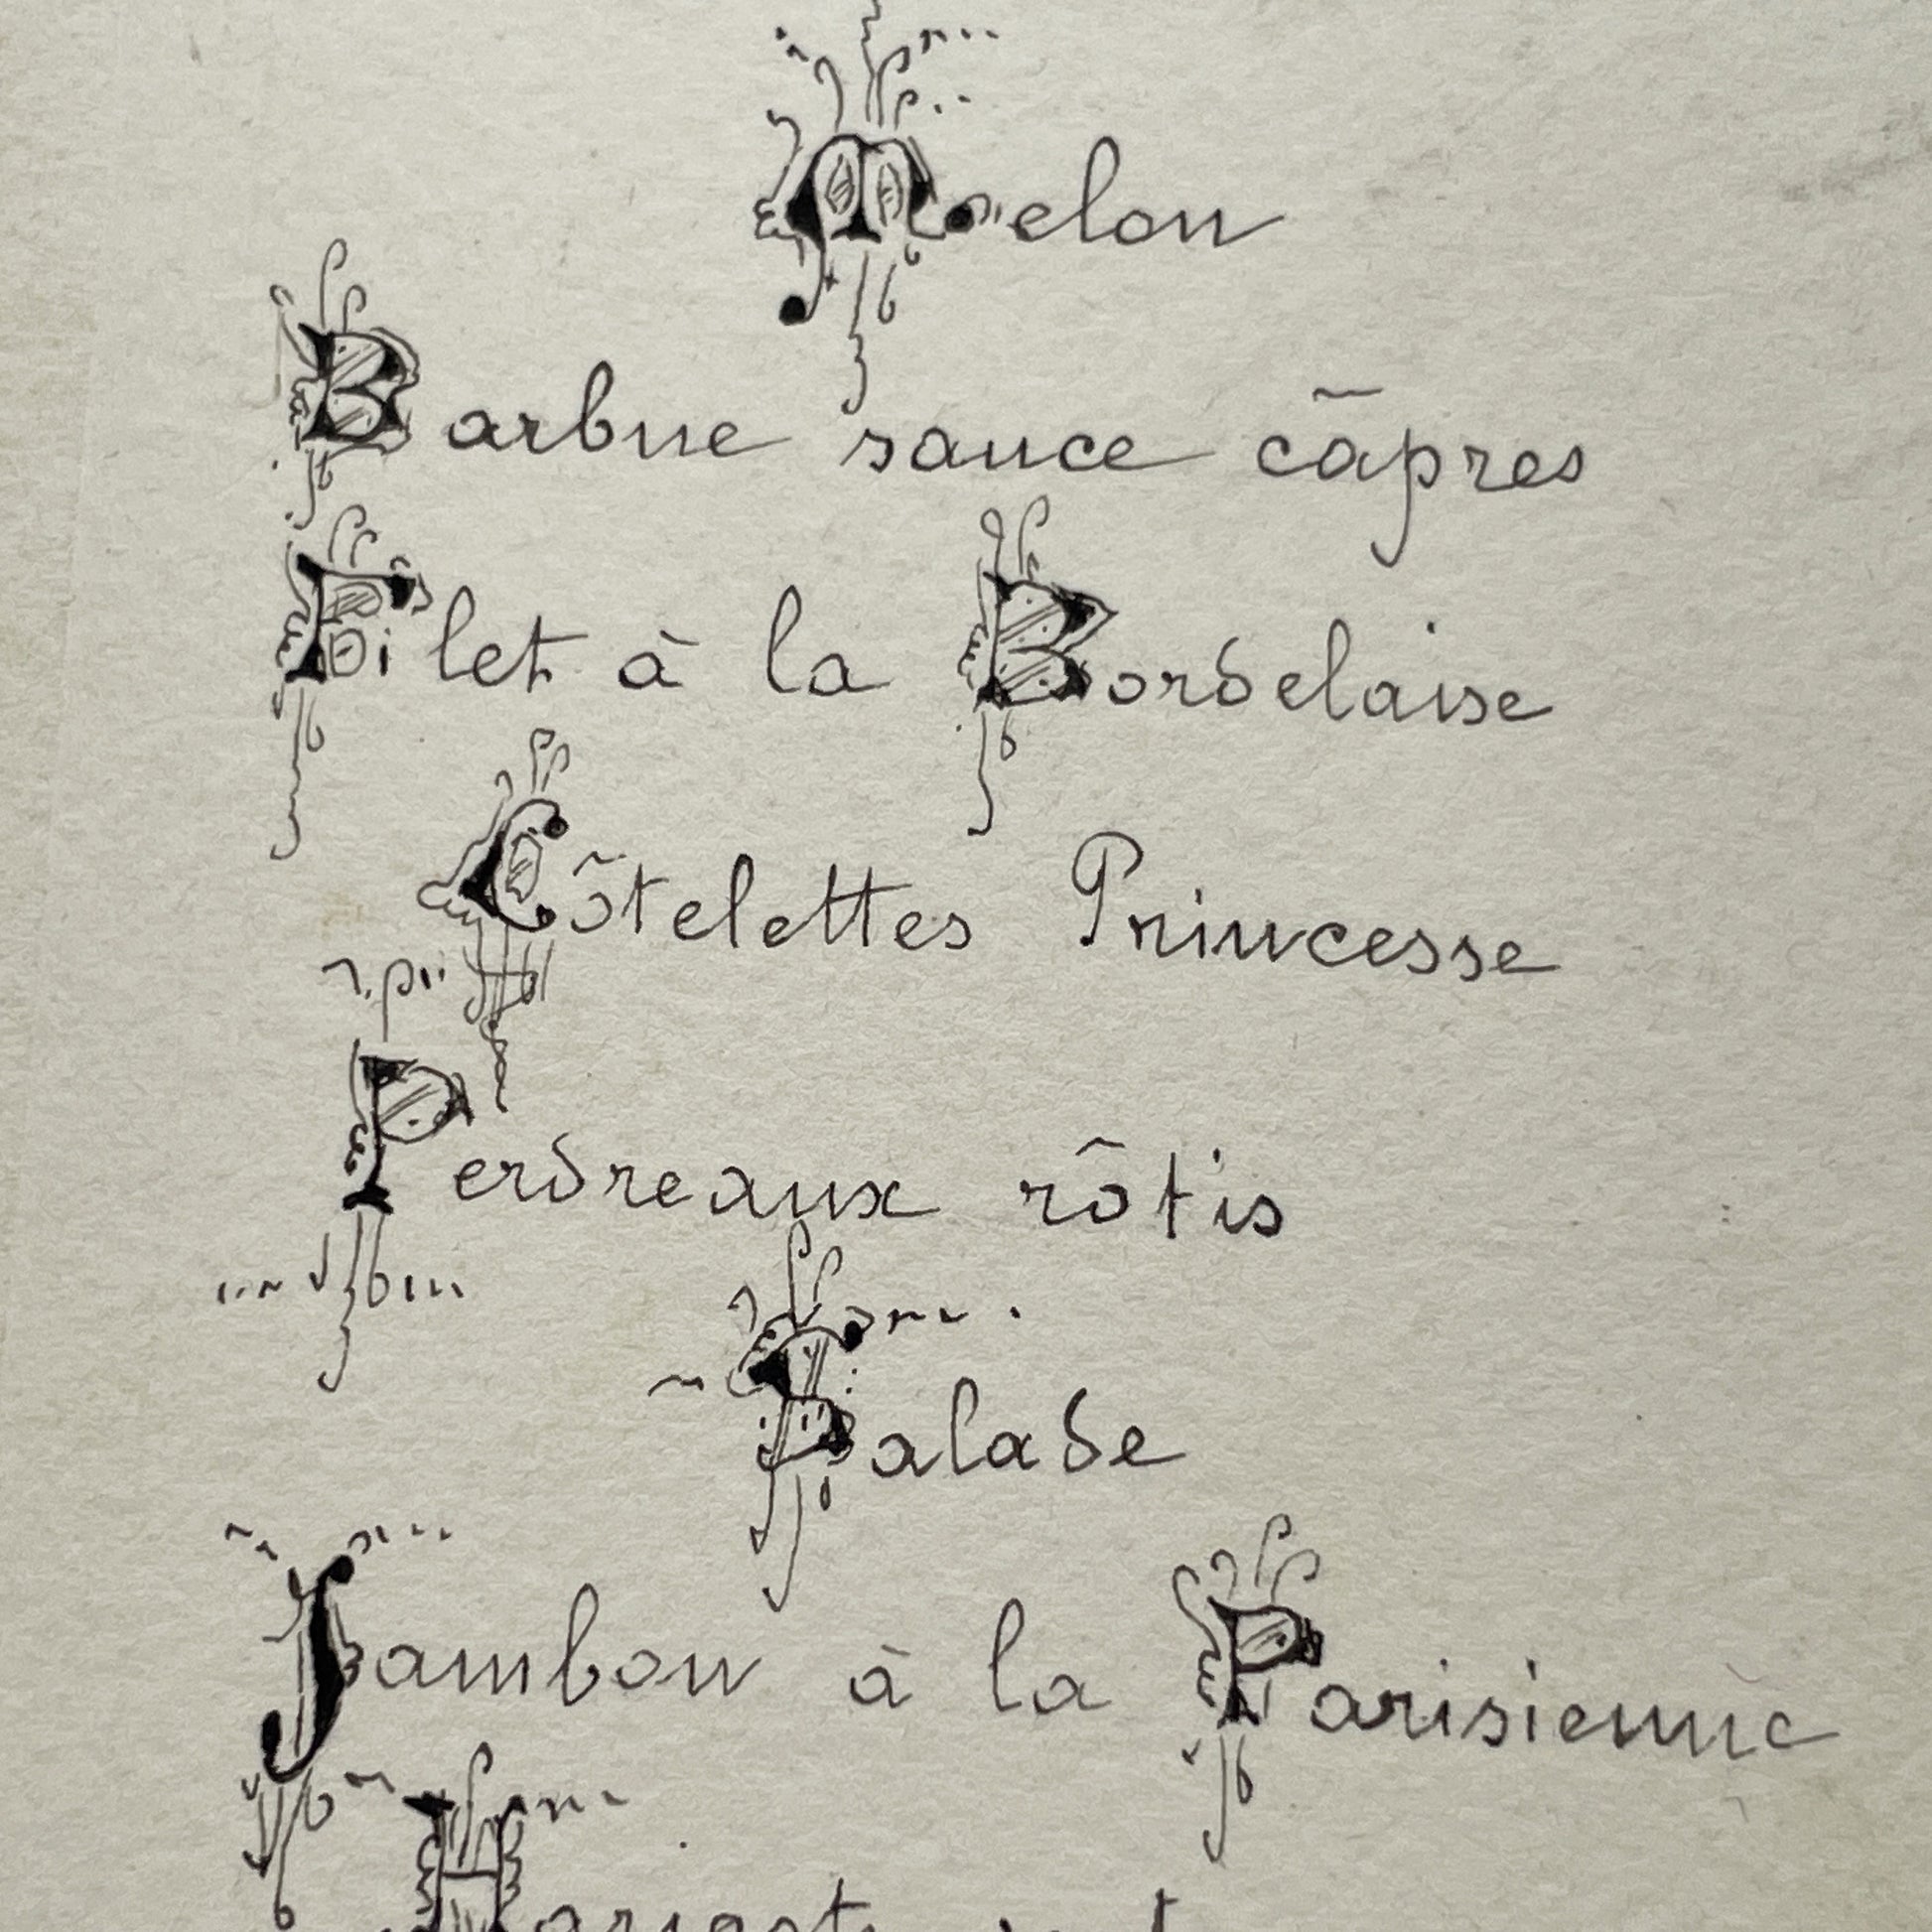 Melon
Barbue sauce câpres
Filet à la Bordelaise
Côtelettes Princesse
Perdreaux rôtis
Salade
Jambon à la Parisienne